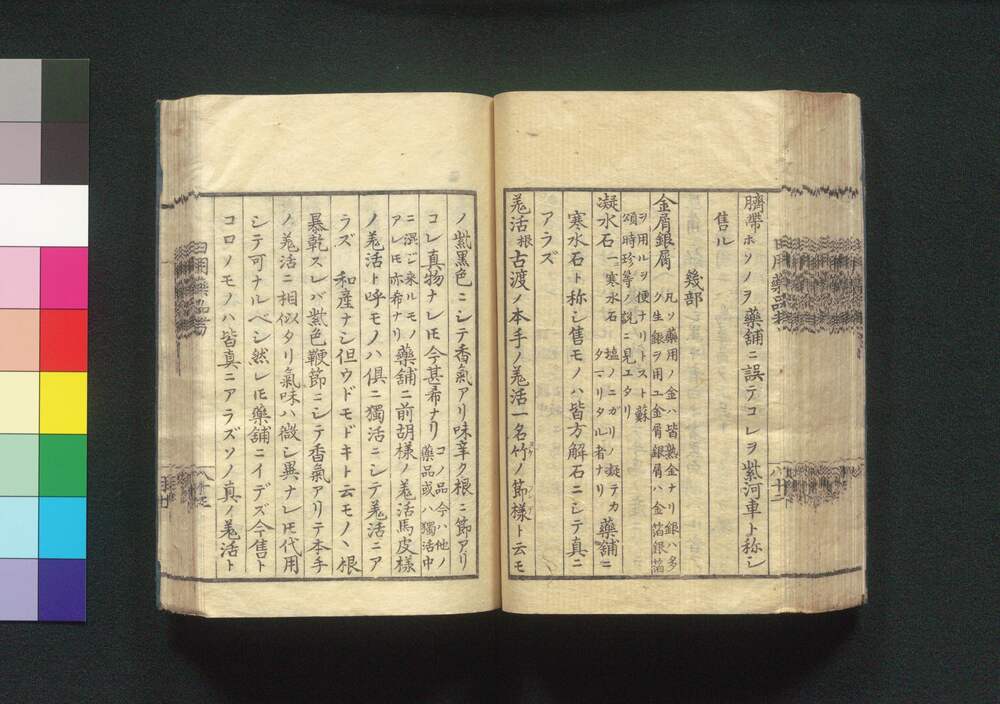 臍帶ホソノヲ藥舖ニ誤テコレヲ紫河車ト称シ
售ル
幾部
金屑銀屑 凡ソ藥用ノ金ハ皆熟金ナリ銀ハ多
ク生銀ヲ用ユ金屑銀屑ハ金箔銀箔
ヲ用ルヲ便ナリトスト蘇
頌時珍等ノ説ニ見エタリ
凝水石 一寒水石 塩ノニガリノ凝テカ
タマリタル者ナリ 藥舖ニ
寒水石ト称シ售モノハ皆方解石ニシテ真ニ
アラズ
羗活根古渡ノ本手ノ羗活一名竹ノ節様ト云モ
ノ紫黒色ニシテ香氣アリ味辛ク根ニ節アリ
コレ真物ナレ𪜈今甚希ナリ コノ品今ハ他ノ
藥品或ハ獨活中
ニ混ジ来ルモノ
アレ𪜈亦希ナリ 藥舖ニ前胡様ノ羗活馬皮様
ノ羗活ト呼モノハ俱ニ獨活ニシテ羗活ニア
ラズ 和産ナシ但ウドモドキト云モノハ根
暴乾スレバ紫色鞭節ニシテ香氣アリテ本手
ノ羗活ニ相似タリ氣味ハ微シ異ナレ𪜈代用
シテ可ナルベシ然レ𪜈藥舖ニイデズ今售ト
コロノモノハ皆真ニアラズソノ真ノ羗活ト